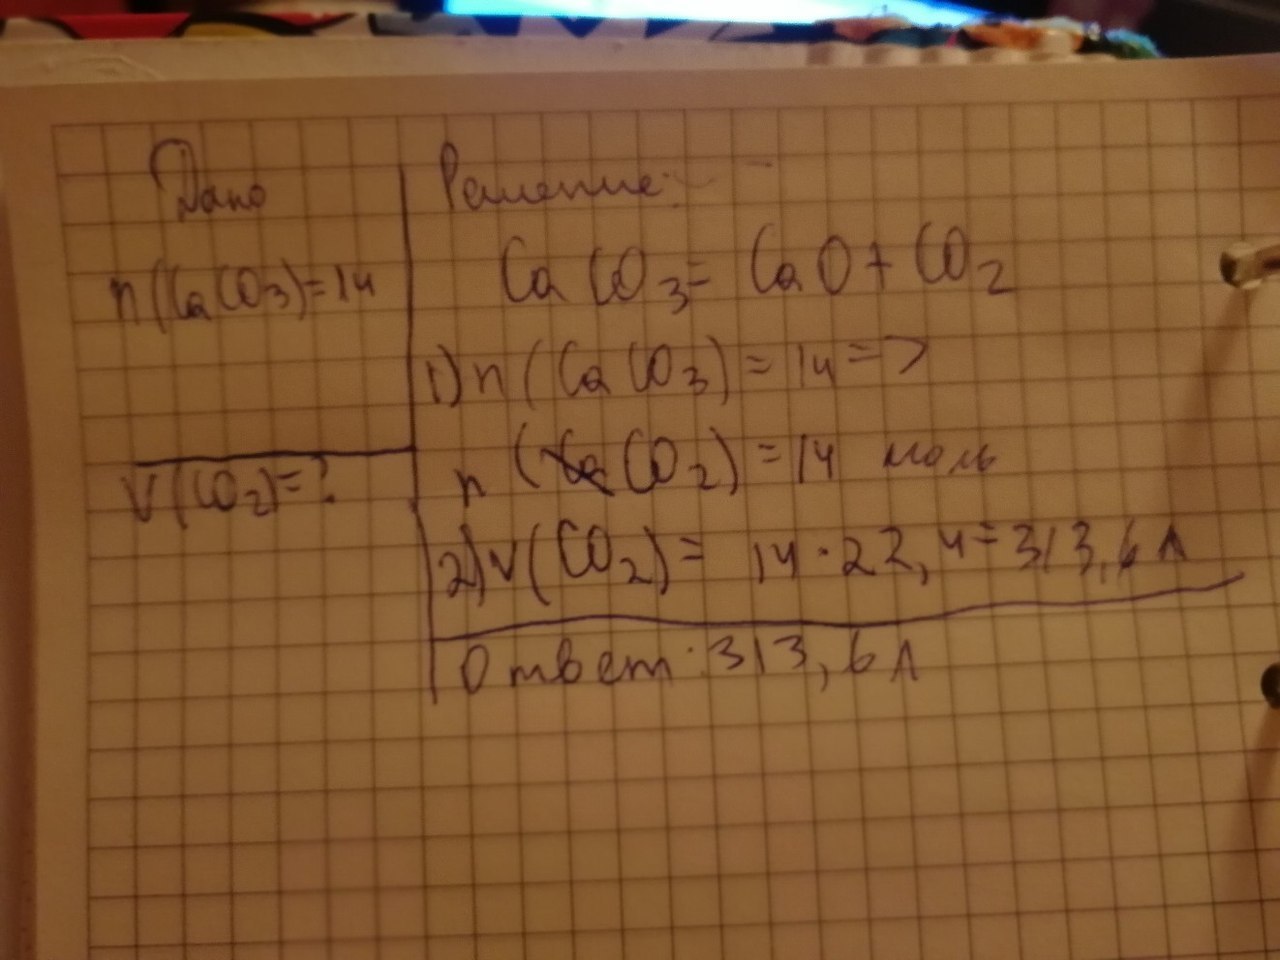 Дано
n(CaCO3)=14
V(CO2)=?
Решение:
CaCO3= CaO+CO2
1)n(CaCO3)=14=>
n(CO2)=14 моль
2)V(CO2)= 14·22,4=313,6 л
Ответ:313,6 л